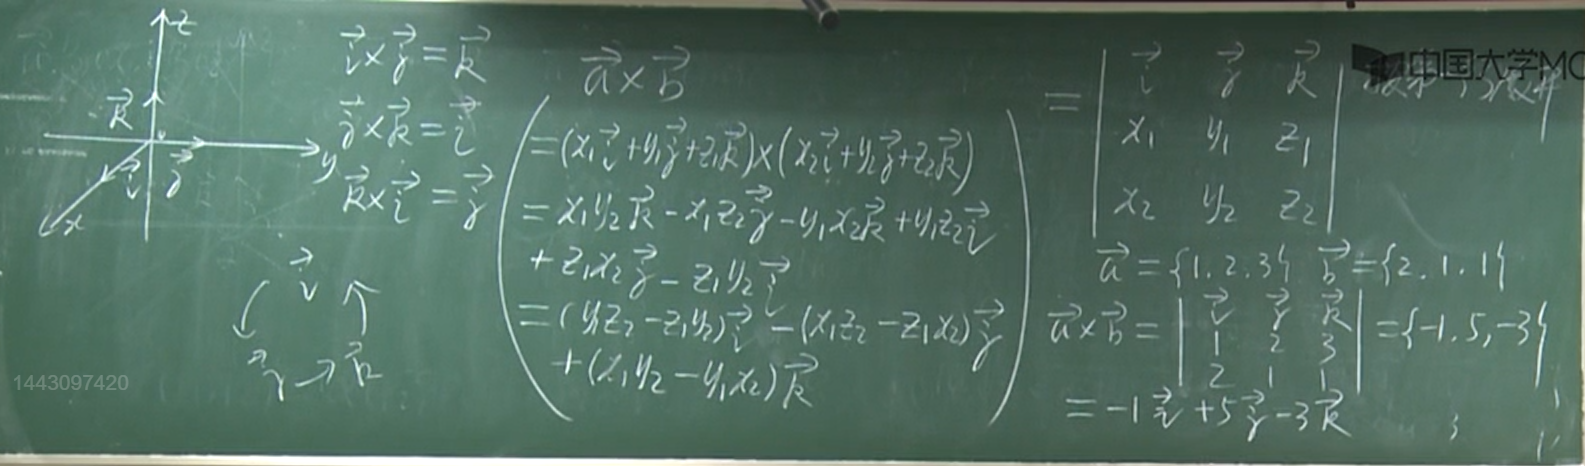 z
k⃗
y
i⃗ j⃗
x
i⃗×j⃗=k⃗
j⃗×k⃗=i⃗
k⃗×i⃗=j⃗
i⃗
j⃗→k⃗
a⃗×b⃗
=(x₁i⃗+y₁j⃗+z₁k⃗)×(x₂i⃗+y₂j⃗+z₂k⃗)
=x₁y₂k⃗-x₁z₂j⃗-y₁x₂k⃗+y₁z₂i⃗
+z₁x₂j⃗-z₁y₂i⃗
=(y₁z₂-z₁y₂)i⃗-(x₁z₂-z₁x₂)j⃗
+(x₁y₂-y₁x₂)k⃗
= | i⃗ j⃗ k⃗ |
x₁ y₁ z₁
x₂ y₂ z₂
a⃗={1.2.3} b⃗={2.1.1}
a⃗×b⃗= | i⃗ j⃗ k⃗ | ={-1.5,-3}
1 2 3
2 1 1
=-1i⃗+5j⃗-3k⃗
中国大学MO
1443097420